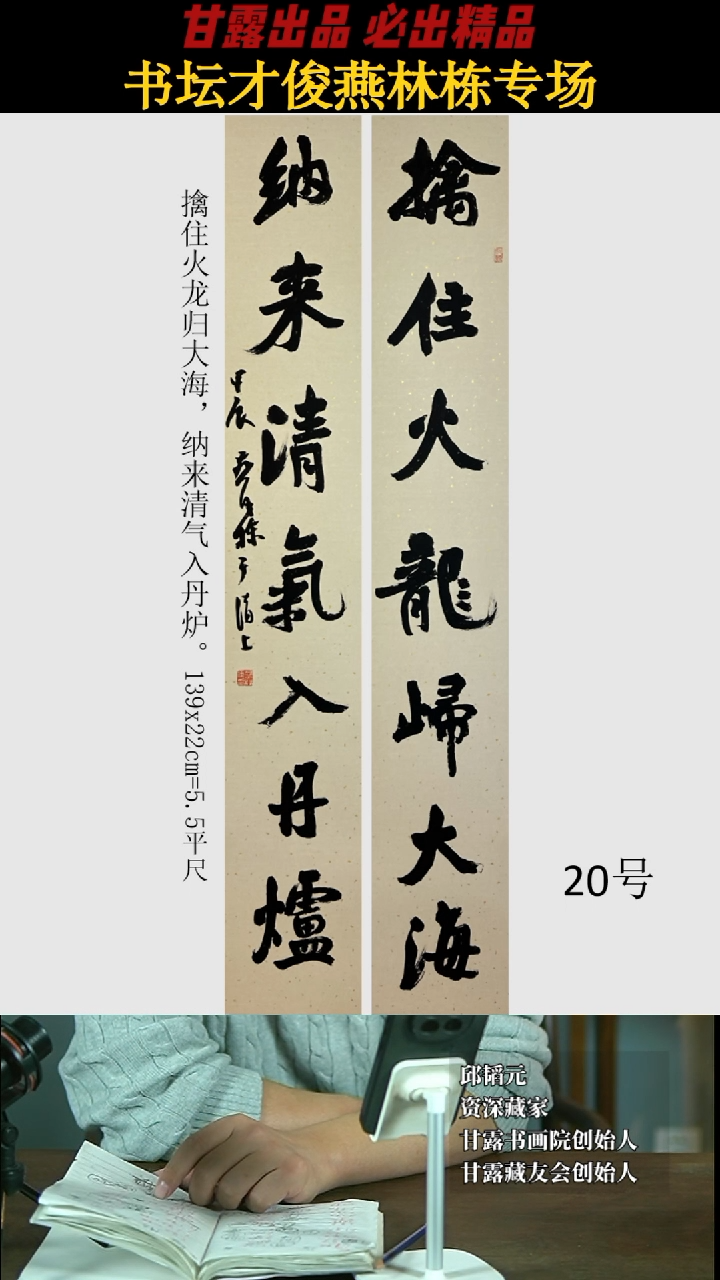 甘露出品 必出精品
书坛才俊燕林栋专场
擒住火龍歸大海
纳来清氣入丹爐
甲辰
擒住火龙归大海，纳来清气入丹炉。139x22cm=5.5平尺
20号
邱韬元
资深藏家
甘露书画院创始人
甘露藏友会创始人